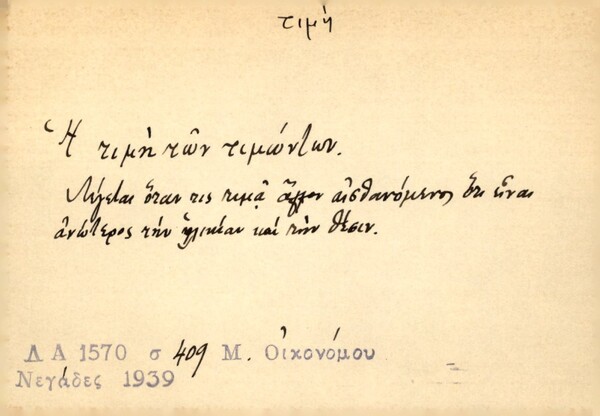 τιμή
Ἡ τιμὴ τῶν τιμώντων.
Λέγεται ὅταν τις τιμᾷ ἄλλον αἰσθανόμενος ὅτι εἶναι
ἀνώτερος τὴν ἡλικίαν καὶ τὴν θέσιν.
Λ Α 1570 σ 409 Μ. Οἰκονόμου
Νεγάδες 1939